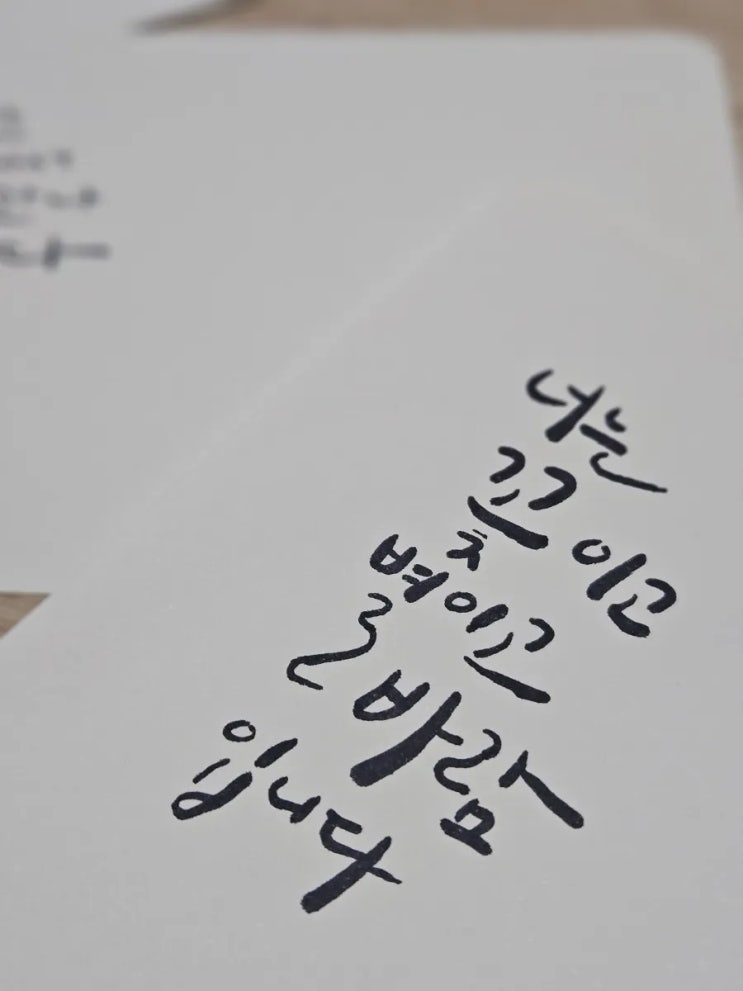 너는
꽃이고
별이고
바람
입니다